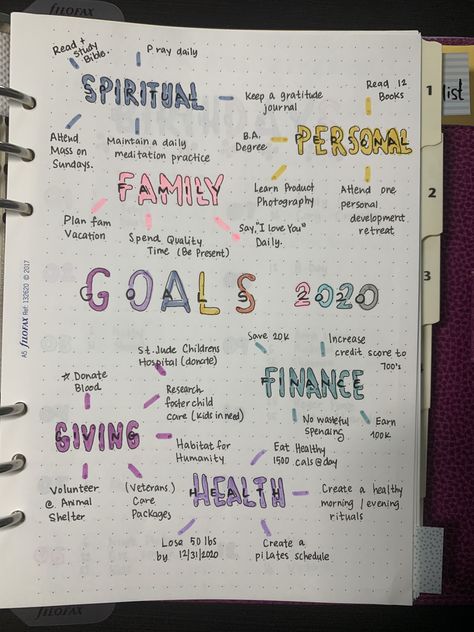 FILOFAX
Read +
Study
Bible.
Pray daily
SPIRITUAL
Keep a gratitude
journal
Attend
Mass on
Sundays.
Maintain a daily
meditation practice
Read 12
Books
B.A.
Degree
PERSONAL
Learn Product
Photography
Attend one
personal
development
retreat
FAMILY
Plan fam
Vacation
Spend Quality
Time (Be Present)
Say, "I love You"
Daily.
GOALS 2020
St. Jude Childrens
Hospital (donate)
☆ Donate
Blood
Research
foster child
care (kids in need)
GIVING
Habitat for
Humanity
Volunteer
@ Animal
Shelter
(Veterans)
Care
Packages
Save 20K
Increase
credit score to
700's
FINANCE
No wasteful
spending
Earn
100K
Eat Healthy
1500 cals @ day
HEALTH
Create a healthy
morning / evening
rituals
Lose 50 lbs
by 12/31/2020
Create a
pilates schedule
A5 FILOFAX Ref: 132620 © 2017
1
2
3
list
FILOFAX